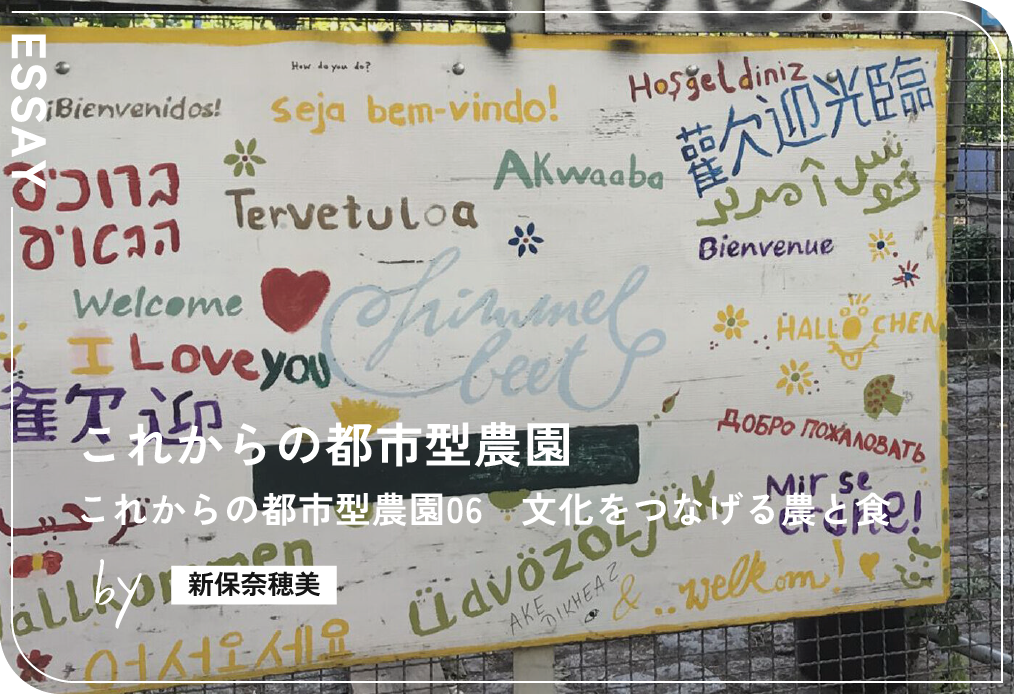 ESSAY
How do you do?
¡Bienvenidos!
Seja bem-vindo!
Hoşgeldiniz
歡迎光臨
ברוכים
הבאים
Akwaaba
خوش آمدید
Tervetuloa
Bienvenue
Welcome
himmel
beet
HALLÖCHEN
I Love you
歡迎
ДОБРО ПОЖАЛОВАТЬ
これからの都市型農園
これからの都市型農園06　文化をつなげる農と食
Mir se
erdhe!
by 新保奈穂美
Üdvözöljük
AKE
DIKHEAZ
& ..welkom!
어서오세요